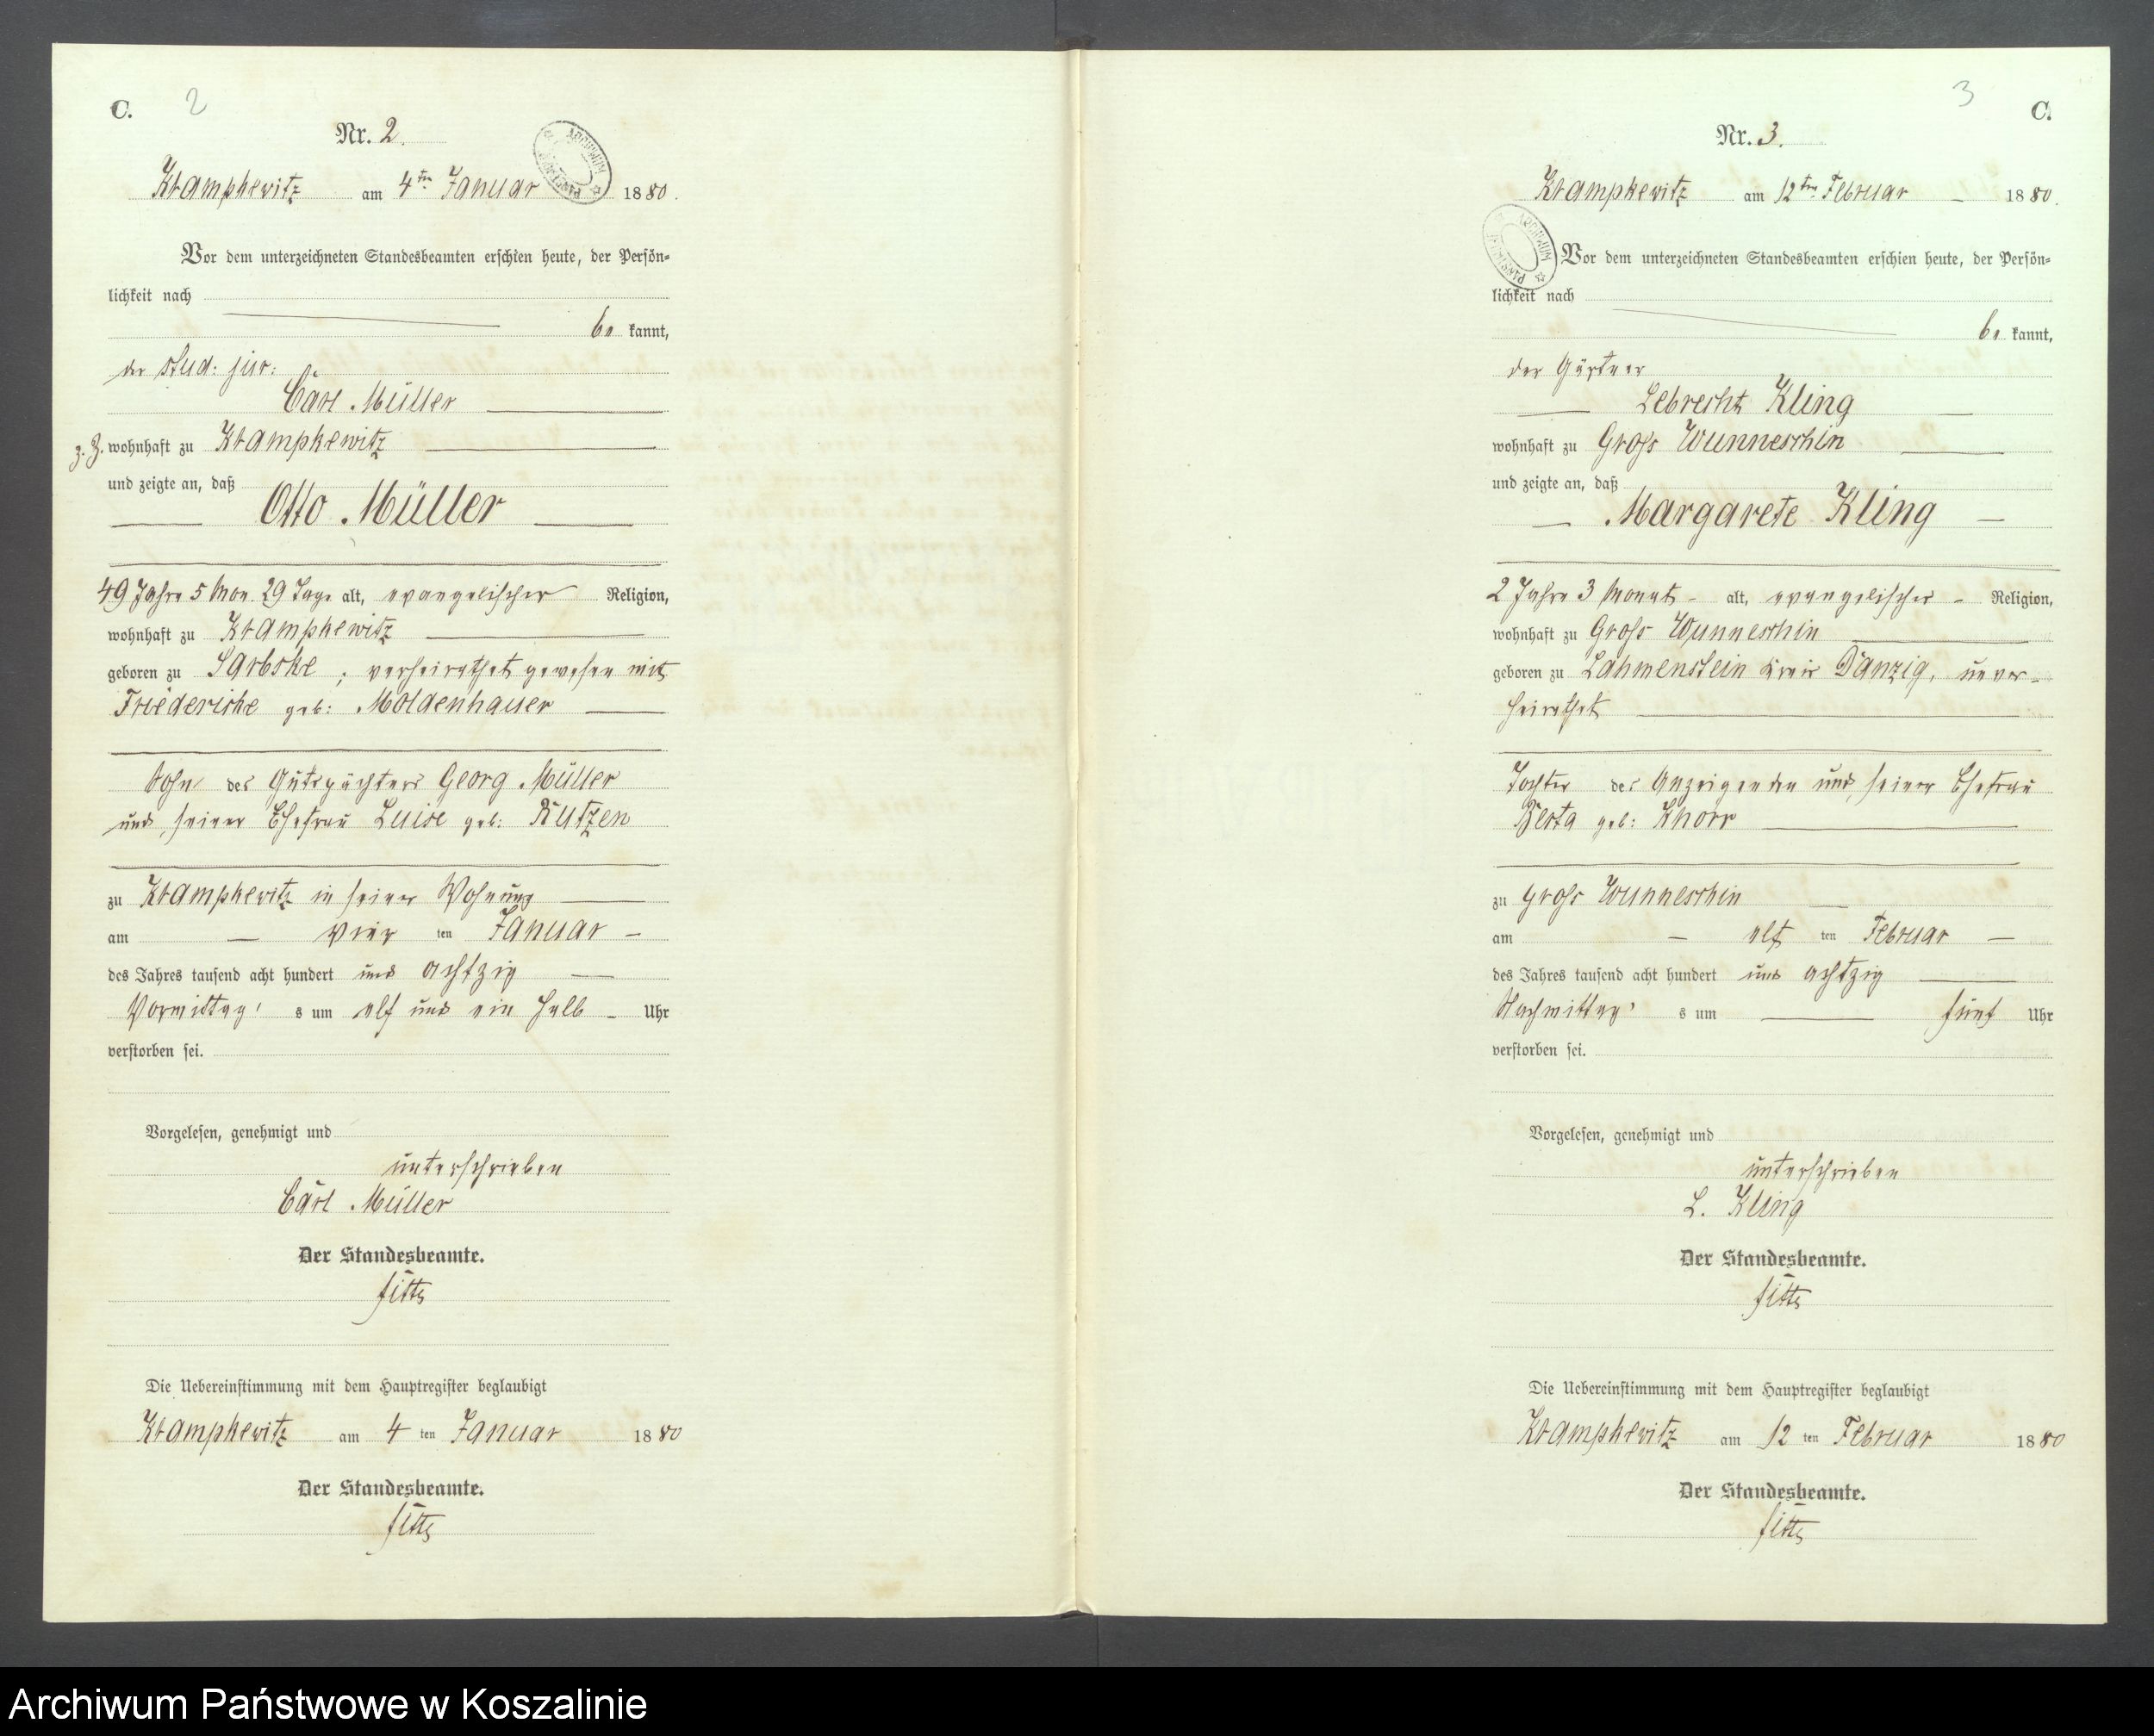 C.
2
Nr. 2.
Krampkewitz am 4ten Januar 1880.
Vor dem unterzeichneten Standesbeamten erschien heute, der Persön-
lichkeit nach
be kannt,
der stud: jur:
Carl Müller
z. Z. wohnhaft zu Krampkewitz
und zeigte an, daß
Otto Müller
49 Jahre 5 Mon. 29 Tage alt, evangelischer Religion,
wohnhaft zu Krampkewitz
geboren zu Sarbske, verheirathet gewesen mit
Friederike geb: Moldenhauer
Sohn des Gutspächters Georg Müller
und seiner Ehefrau Luise geb: Rutzen
zu Krampkewitz in seiner Wohnung
am vier ten Januar
des Jahres tausend acht hundert und achtzig
Vormittag s um elf und ein halb Uhr
verstorben sei.
Vorgelesen, genehmigt und
unterschrieben
Carl Müller
Der Standesbeamte.
Die Uebereinstimmung mit dem Hauptregister beglaubigt
Krampkewitz am 4 ten Januar 1880
Der Standesbeamte.
3
C.
Nr. 3.
Krampkewitz am 12ten Februar 1880.
Vor dem unterzeichneten Standesbeamten erschien heute, der Persön-
lichkeit nach
be kannt,
der Gärtner
Lebrecht Kling
wohnhaft zu Gross Wunneschin
und zeigte an, daß
Margarete Kling
2 Jahre 3 Monat alt, evangelischer Religion,
wohnhaft zu Gross Wunneschin
geboren zu Lahmenstein Kreis Danzig, unver-
heirathet
Tochter des Anzeigenden und seiner Ehefrau
Berta geb: Knorr
zu Gross Wunneschin
am elf ten Februar
des Jahres tausend acht hundert und achtzig
Nachmittag s um fünf Uhr
verstorben sei.
Vorgelesen, genehmigt und
unterschrieben
L. Kling
Der Standesbeamte.
Die Uebereinstimmung mit dem Hauptregister beglaubigt
Krampkewitz am 12 ten Februar 1880
Der Standesbeamte.
Archiwum Państwowe w Koszalinie